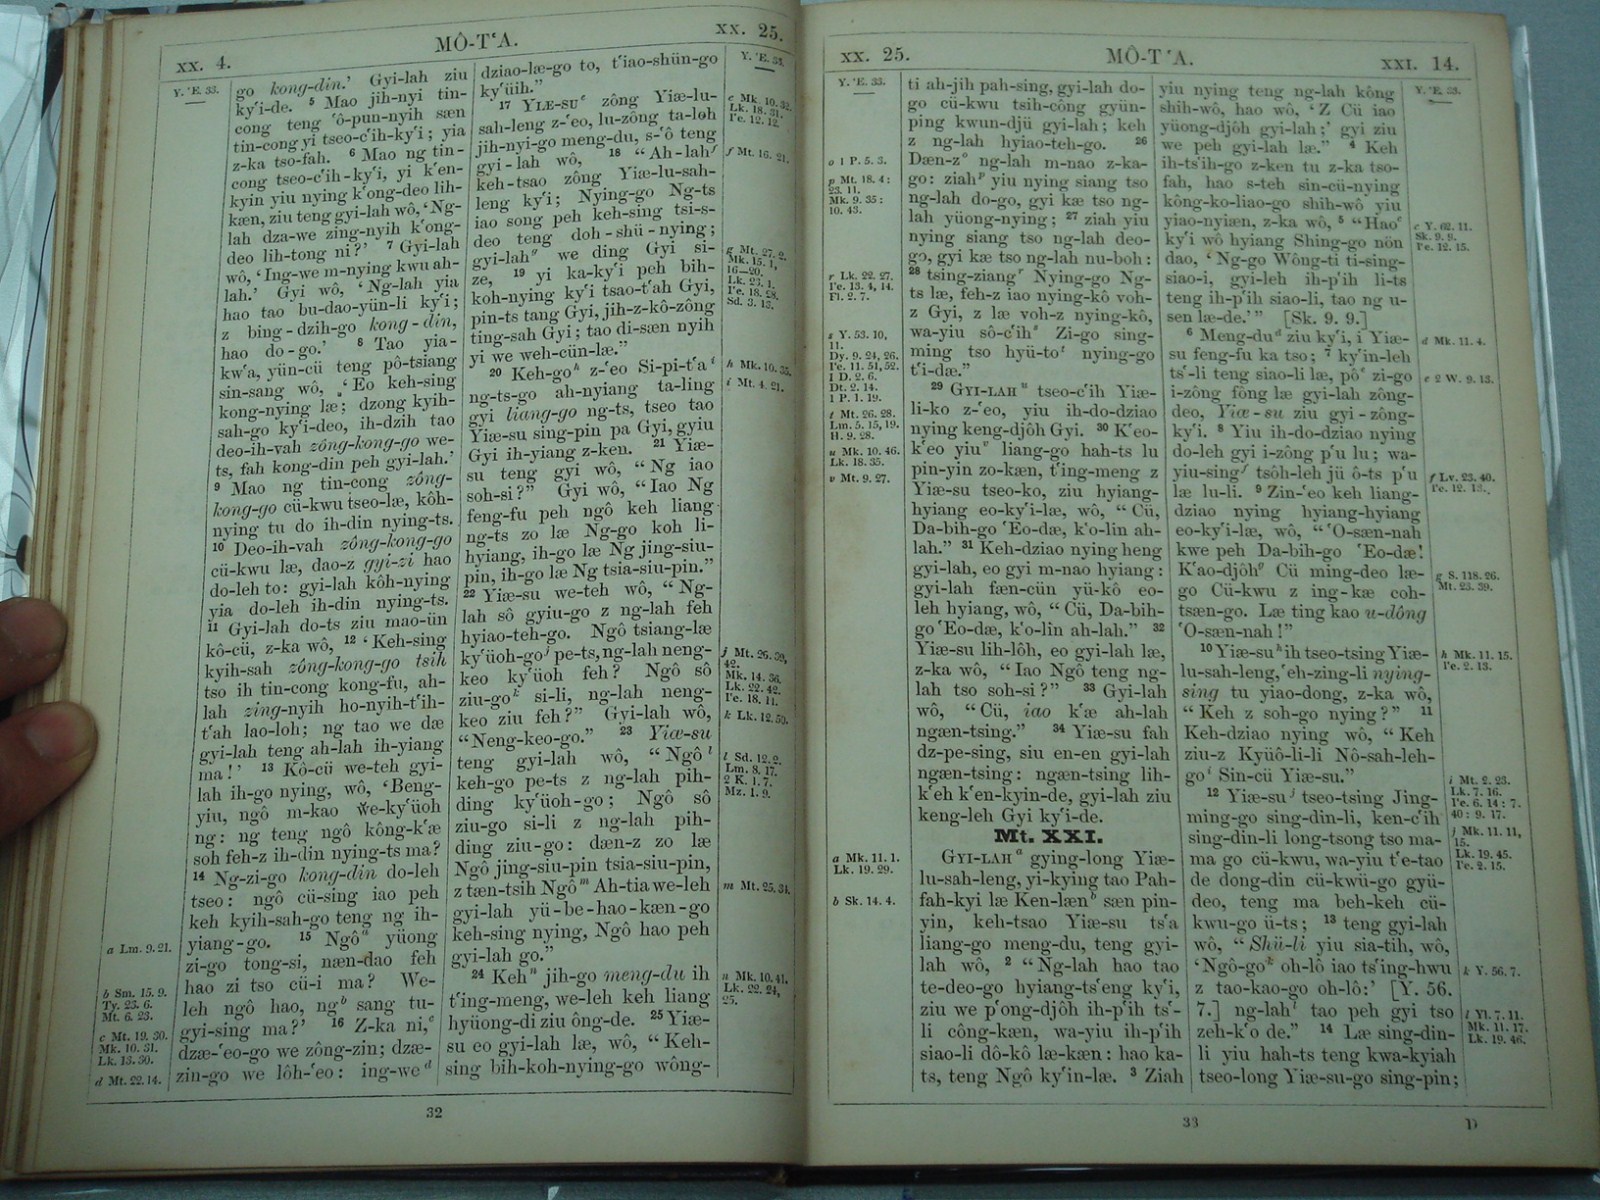 xx. 4.
MÔ-TʻA.
xx. 25.
Y. ʻE. 33.
go kong-din.’ Gyi-lah ziu
ky‘i-de. 5 Mao jih-nyi tin-
cong teng ‘ô-pun-nyih sæn
tin-cong yi tseo-c‘ih-ky‘i; yia
z-ka tso-fah. 6 Mao ng tin-
cong tseo-c‘ih-ky‘i, yi k‘en-
kyin yiu nying k‘ong-deo lih-
kæn, ziu teng gyi-lah wô, ‘Ng-
lah dza-we zing-nyih k‘ong-
deo lih-tong ni?’ 7 Gyi-lah
wô, ‘Ing-we m-nying kwu ah-
lah.’ Gyi wô, ‘Ng-lah yia
hao tao bu-dao-yün-li ky‘i;
z bing-dzih-go kong-din,
hao do-go.’ 8 Tao yia-
kw‘a, yün-cü teng pô-tsiang
sin-sang wô, ‘Eo keh-sing
kong-nying læ; dzong kyih-
sah-go ky‘i-deo, ih-dzih tao
deo-ih-vah zông-kong-go we-
ts, fah kong-din peh gyi-lah.’
9 Mao ng tin-cong zông-
kong-go cü-kwu tseo-læ, kôh-
nying tu do ih-din nying-ts.
10 Deo-ih-vah zông-kong-go
cü-kwu læ, dao-z gyi-zi hao
do-leh to: gyi-lah kôh-nying
yia do-leh ih-din nying-ts.
11 Gyi-lah do-ts ziu mao-ün
kô-cü, z-ka wô, 12 ‘Keh-sing
kyih-sah zông-kong-go tsih
tso ih tin-cong kong-fu, ah-
lah zing-nyih ho-nyih-t‘ih-
t‘ah lao-loh; ng tao we dæ
gyi-lah teng ah-lah ih-yiang
ma!’ 13 Kô-cü we-teh gyi-
lah ih-go nying, wô, ‘Beng-
yiu, ngô m-kao we-ky‘üoh
ng: ng teng ngô kông-k‘æ
soh feh-z ih-din nying-ts ma?
14 Ng-zi-go kong-din do-leh
tseo: ngô cü-sing iao peh
keh kyih-sah-go teng ng ih-
yiang-go. 15 Ngô a yüong
zi-go tong-si, næn-dao feh
hao zi tso cü-i ma? We-
leh ngô hao, ng b sang tu-
gyi-sing ma?’ 16 Z-ka ni, c
dzæ-‘eo-go we zông-zin; dzæ-
zin-go we lôh-‘eo: ing-we d
a Lm. 9. 21.
b Sm. 15. 9.
Ty. 23. 6.
Mt. 6. 23.
c Mt. 19. 30.
Mk. 10. 31.
Lk. 13. 30.
d Mt. 22. 14.
dziao-læ-go to, t‘iao-shün-go
ky‘üih.”
17 Yiæ-su e zông Yiæ-lu-
sah-leng z-‘eo, lu-zông ta-loh
jih-nyi-go meng-du, s-‘ô teng
gyi-lah wô, 18 “Ah-lah f
keh-tsao zông Yiæ-lu-sah-
leng ky‘i; Nying-go Ng-ts
iao song peh keh-sing tsi-s-
deo teng doh-shü-nying;
gyi-lah g we ding Gyi si-
ze, 19 yi ka-ky‘i peh bih-
koh-nying ky‘i tsao-t‘ah Gyi,
pin-ts tang Gyi, jih-z-kô-zông
ting-sah Gyi; tao di-sæn nyih
yi we weh-cün-læ.”
20 Keh-go h z-‘eo Si-pi-t‘a i
ng-ts-go ah-nyiang ta-ling
gyi liang-go ng-ts, tseo tao
Yiæ-su sing-pin pa Gyi, gyiu
Gyi ih-yiang z-ken. 21 Yiæ-
su teng gyi wô, “Ng iao
soh-si?” Gyi wô, “Iao Ng
feng-fu peh ngô keh liang
ng-ts zo læ Ng-go koh li-
hyiang, ih-go læ Ng jing-siu-
pin, ih-go læ Ng tsia-siu-pin.”
22 Yiæ-su we-teh wô, “Ng-
lah sô gyiu-go z ng-lah feh
hyiao-teh-go. Ngô tsiang-læ
ky‘üoh-go j pe-ts, ng-lah neng-
keo ky‘üoh feh? Ngô sô
ziu-go k si-li, ng-lah neng-
keo ziu feh?” Gyi-lah wô,
“Neng-keo-go.” 23 Yiæ-su
teng gyi-lah wô, “Ngô l
keh-go pe-ts z ng-lah pih-
ding ky‘üoh-go; Ngô sô
ziu-go si-li z ng-lah pih-
ding ziu-go: dæn-z zo læ
Ngô jing-siu-pin tsia-siu-pin,
z tæn-tsih Ngô m Ah-tia we-leh
gyi-lah yü-be-hao-kæn-go
keh-sing nying, Ngô hao peh
gyi-lah go.”
24 Keh n jih-go meng-du ih
t‘ing-meng, we-leh keh liang
hyüong-di ziu ông-de. 25 Yiæ-
su eo gyi-lah læ, wô, “Keh-
sing bih-koh-nying-go wông-
Y. ʻE. 33.
e Mk. 10. 32.
Lk. 18. 31.
I'e. 12. 12.
f Mt. 16. 21.
g Mt. 27. 2.
Mk. 15. 1,
16–20.
Lk. 23. 1.
I'e. 18. 28.
Sd. 3. 13.
h Mk. 10. 35.
i Mt. 4. 21.
j Mt. 26. 39,
42.
Mk. 14. 36.
Lk. 22. 42.
I'e. 18. 11.
k Lk. 12. 50.
l Sd. 12. 2.
Lm. 8. 17.
2 K. 1. 7.
Mz. 1. 9.
m Mt. 25. 34.
n Mk. 10. 41.
Lk. 22. 24,
25.
32
xx. 25.
MÔ-TʻA.
xxi. 14.
Y. ʻE. 33.
o 1 P. 5. 3.
p Mt. 18. 4:
23. 11.
Mk. 9. 35:
10. 43.
r Lk. 22. 27.
I'e. 13. 4, 14.
Fl. 2. 7.
s Y. 53. 10,
11.
Dy. 9. 24, 26.
I'e. 11. 51, 52.
1 D. 2. 6.
Dt. 2. 14.
1 P. 1. 19.
t Mt. 26. 28.
Lm. 5. 15, 19.
H. 9. 28.
u Mk. 10. 46.
Lk. 18. 35.
v Mt. 9. 27.
a Mk. 11. 1.
Lk. 19. 29.
b Sk. 14. 4.
ti ah-jih pah-sing, gyi-lah do-
go cü-kwu tsih-công gyün-
ping kwun-djü gyi-lah; keh
z ng-lah hyiao-teh-go. 26
Dæn-z o ng-lah m-nao z-ka-
go: ziah p yiu nying siang tso
ng-lah do-go, gyi kæ tso ng-
lah yüong-nying; 27 ziah yiu
nying siang tso ng-lah deo-
go, gyi kæ tso ng-lah nu-boh:
28 tsing-ziang r Nying-go Ng-
ts læ, feh-z iao nying-kô voh-
z Gyi, z læ voh-z nying-kô,
wa-yiu sô-c‘ih s Zi-go sing-
ming tso hyü-to t nying-go
t‘i-dæ.”
29 Gyi-lah u tseo-c‘ih Yiæ-
li-ko z-‘eo, yiu ih-do-dziao
nying keng-djôh Gyi. 30 K‘eo-
k‘eo yiu v liang-go hah-ts lu
pin-yin zo-kæn, t‘ing-meng z
Yiæ-su tseo-ko, ziu hyiang-
hyiang eo-ky‘i-læ, wô, “Cü,
Da-bih-go ‘Eo-dæ, k‘o-lin ah-
lah.” 31 Keh-dziao nying heng
gyi-lah, eo gyi m-nao hyiang:
gyi-lah fæn-cün yü-kô eo-
leh hyiang, wô, “Cü, Da-bih-
go ‘Eo-dæ, k‘o-lin ah-lah.” 32
Yiæ-su lih-lôh, eo gyi-lah læ,
z-ka wô, “Iao Ngô teng ng-
lah tso soh-si?” 33 Gyi-lah
wô, “Cü, iao k‘æ ah-lah
ngæn-tsing.” 34 Yiæ-su fah
dz-pe-sing, siu en-en gyi-lah
ngæn-tsing: ngæn-tsing lih-
k‘eh k‘en-kyin-de, gyi-lah ziu
keng-leh Gyi ky‘i-de.
Mt. XXI.
Gyi-lah a gying-long Yiæ-
lu-sah-leng, yi-kying tao Pah-
fah-kyi læ Ken-læn b sæn pin-
yin, keh-tsao Yiæ-su ts‘a
liang-go meng-du, teng gyi-
lah wô, 2 “Ng-lah hao tao
te-deo-go hyiang-ts‘eng ky‘i,
ziu we p‘ong-djôh ih-p‘ih ts‘-
li công-kæn, wa-yiu ih-p‘ih
siao-li dô-kô læ-kæn: hao ka-
ts, teng Ngô ky‘in-læ. 3 Ziah
yiu nying teng ng-lah kông
shih-wô, hao wô, ‘Z Cü iao
yüong-djôh gyi-lah;’ gyi ziu
we peh gyi-lah læ.” 4 Keh
ih-ts‘ih-go z-ken tu z-ka tso-
fah, hao s-teh sin-cü-nying
kông-ko-liao-go shih-wô yiu
yiao-nyiæn, z-ka wô, 5 “Hao c
ky‘i wô hyiang Shing-go nön
dao, ‘Ng-go Wông-ti ti-sing-
siao-i, gyi-leh ih-p‘ih li-ts
teng ih-p‘ih siao-li, tao ng u-
sen læ-de.’” [Sk. 9. 9.]
6 Meng-du d ziu ky‘i, i Yiæ-
su feng-fu ka tso; 7 ky‘in-leh
ts‘-li teng siao-li læ, pô e zi-go
i-zông fông læ gyi-lah zông-
deo, Yiæ-su ziu gyi-zông-
ky‘i. 8 Yiu ih-do-dziao nying
do-leh gyi i-zông p‘u lu; wa-
yiu-sing f tsôh-leh jü ô-ts p‘u
læ lu-li. 9 Zin-‘eo keh liang-
dziao nying hyiang-hyiang
eo-ky‘i-læ, wô, “‘O-sæn-nah
kwe peh Da-bih-go ‘Eo-dæ!
K‘ao-djôh g Cü ming-deo læ-
go Cü-kwu z ing-kæ coh-
tsæn-go. Læ ting kao u-dông
‘O-sæn-nah!”
10 Yiæ-su h ih tseo-tsing Yiæ-
lu-sah-leng, ‘eh-zing-li nying-
sing tu yiao-dong, z-ka wô,
“Keh z soh-go nying?” 11
Keh-dziao nying wô, “Keh
ziu-z Kyüô-li-li Nô-sah-leh-
go i Sin-cü Yiæ-su.”
12 Yiæ-su j tseo-tsing Jing-
ming-go sing-din-li, ken-c‘ih
sing-din-li long-tsong tso ma-
ma go cü-kwu, wa-yiu t‘e-tao
de dong-din cü-kwü-go gyü-
deo, teng ma beh-keh cü-
kwu-go ü-ts; 13 teng gyi-lah
wô, “Shü-li yiu sia-tih, wô,
‘Ngô-go k oh-lô iao ts‘ing-hwu
z tao-kao-go oh-lô:’ [Y. 56.
7.] ng-lah l tao peh gyi tso
zeh-k‘o de.” 14 Læ sing-din-
li yiu hah-ts teng kwa-kyiah
tseo-long Yiæ-su-go sing-pin;
Y. ʻE. 33.
c Y. 62. 11.
Sk. 9. 9.
I'e. 12. 15.
d Mk. 11. 4.
e 2 W. 9. 13.
f Lv. 23. 40.
I'e. 12. 13.
g S. 118. 26.
Mt. 23. 39.
h Mk. 11. 15.
I'e. 2. 13.
i Mt. 2. 23.
Lk. 7. 16.
I'e. 6. 14: 7.
40: 9. 17.
j Mk. 11. 11,
15.
Lk. 19. 45.
I'e. 2. 15.
k Y. 56. 7.
l Yl. 7. 11.
Mk. 11. 17.
Lk. 19. 46.
33
D